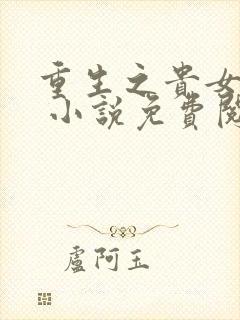 重生之貴女
小說免費閱
盧阿玉